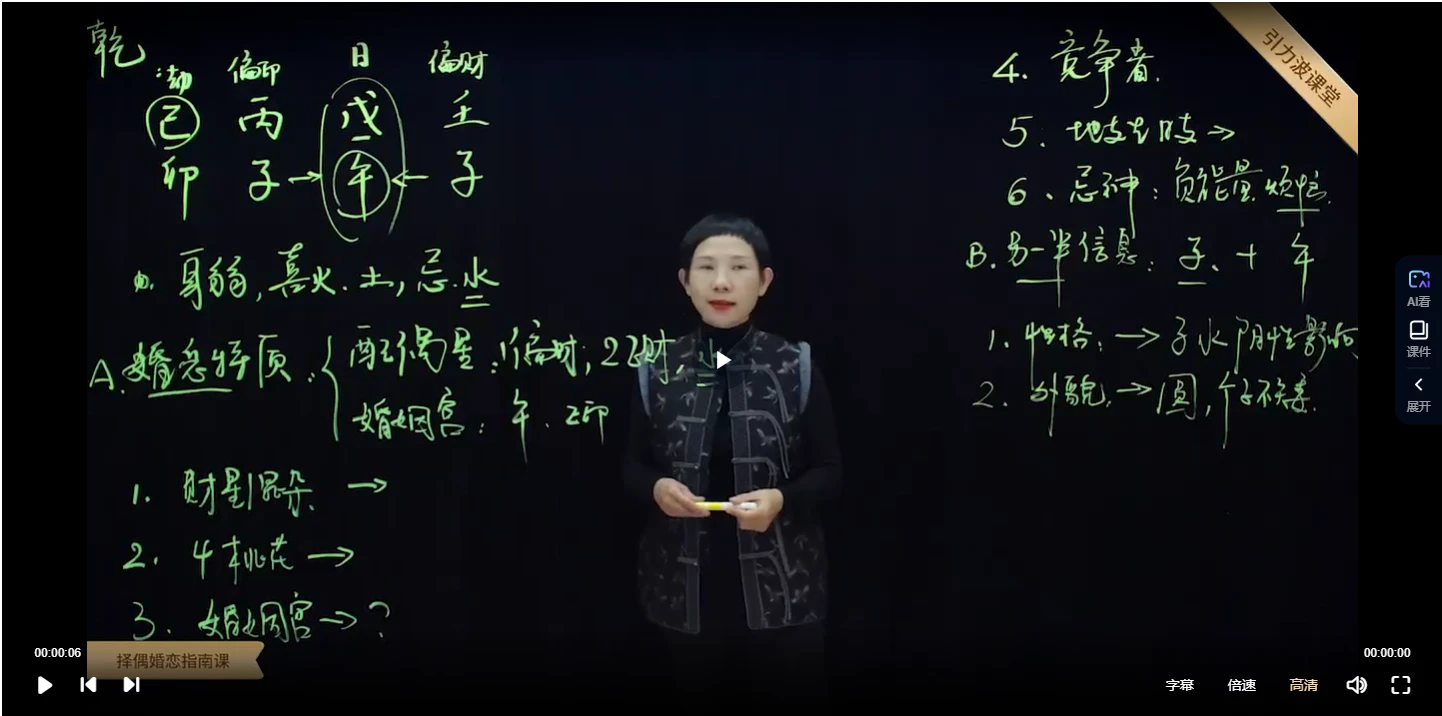 乾
劫 偏印 日 偏财
己 丙 戊 壬
卯 子→ 午 ←子
身弱,喜火.土,忌.水
A.婚恋特质:
配偶星:1偏财;2正财,水
婚姻宫:午.正印
1. 财星混杂 →
2. 4桃花 →
3. 婚姻宫→?
4. 竞争者.
6、忌神:负能量.烦恼.
B.另一半信息:子、+ 午
1.性格:→子水阴性影响
2.外貌,→圆,个子不太高.
引力波课堂
AI看
课件
展开
00:00:06
00:00:00
择偶婚恋指南课
字幕 倍速 高清